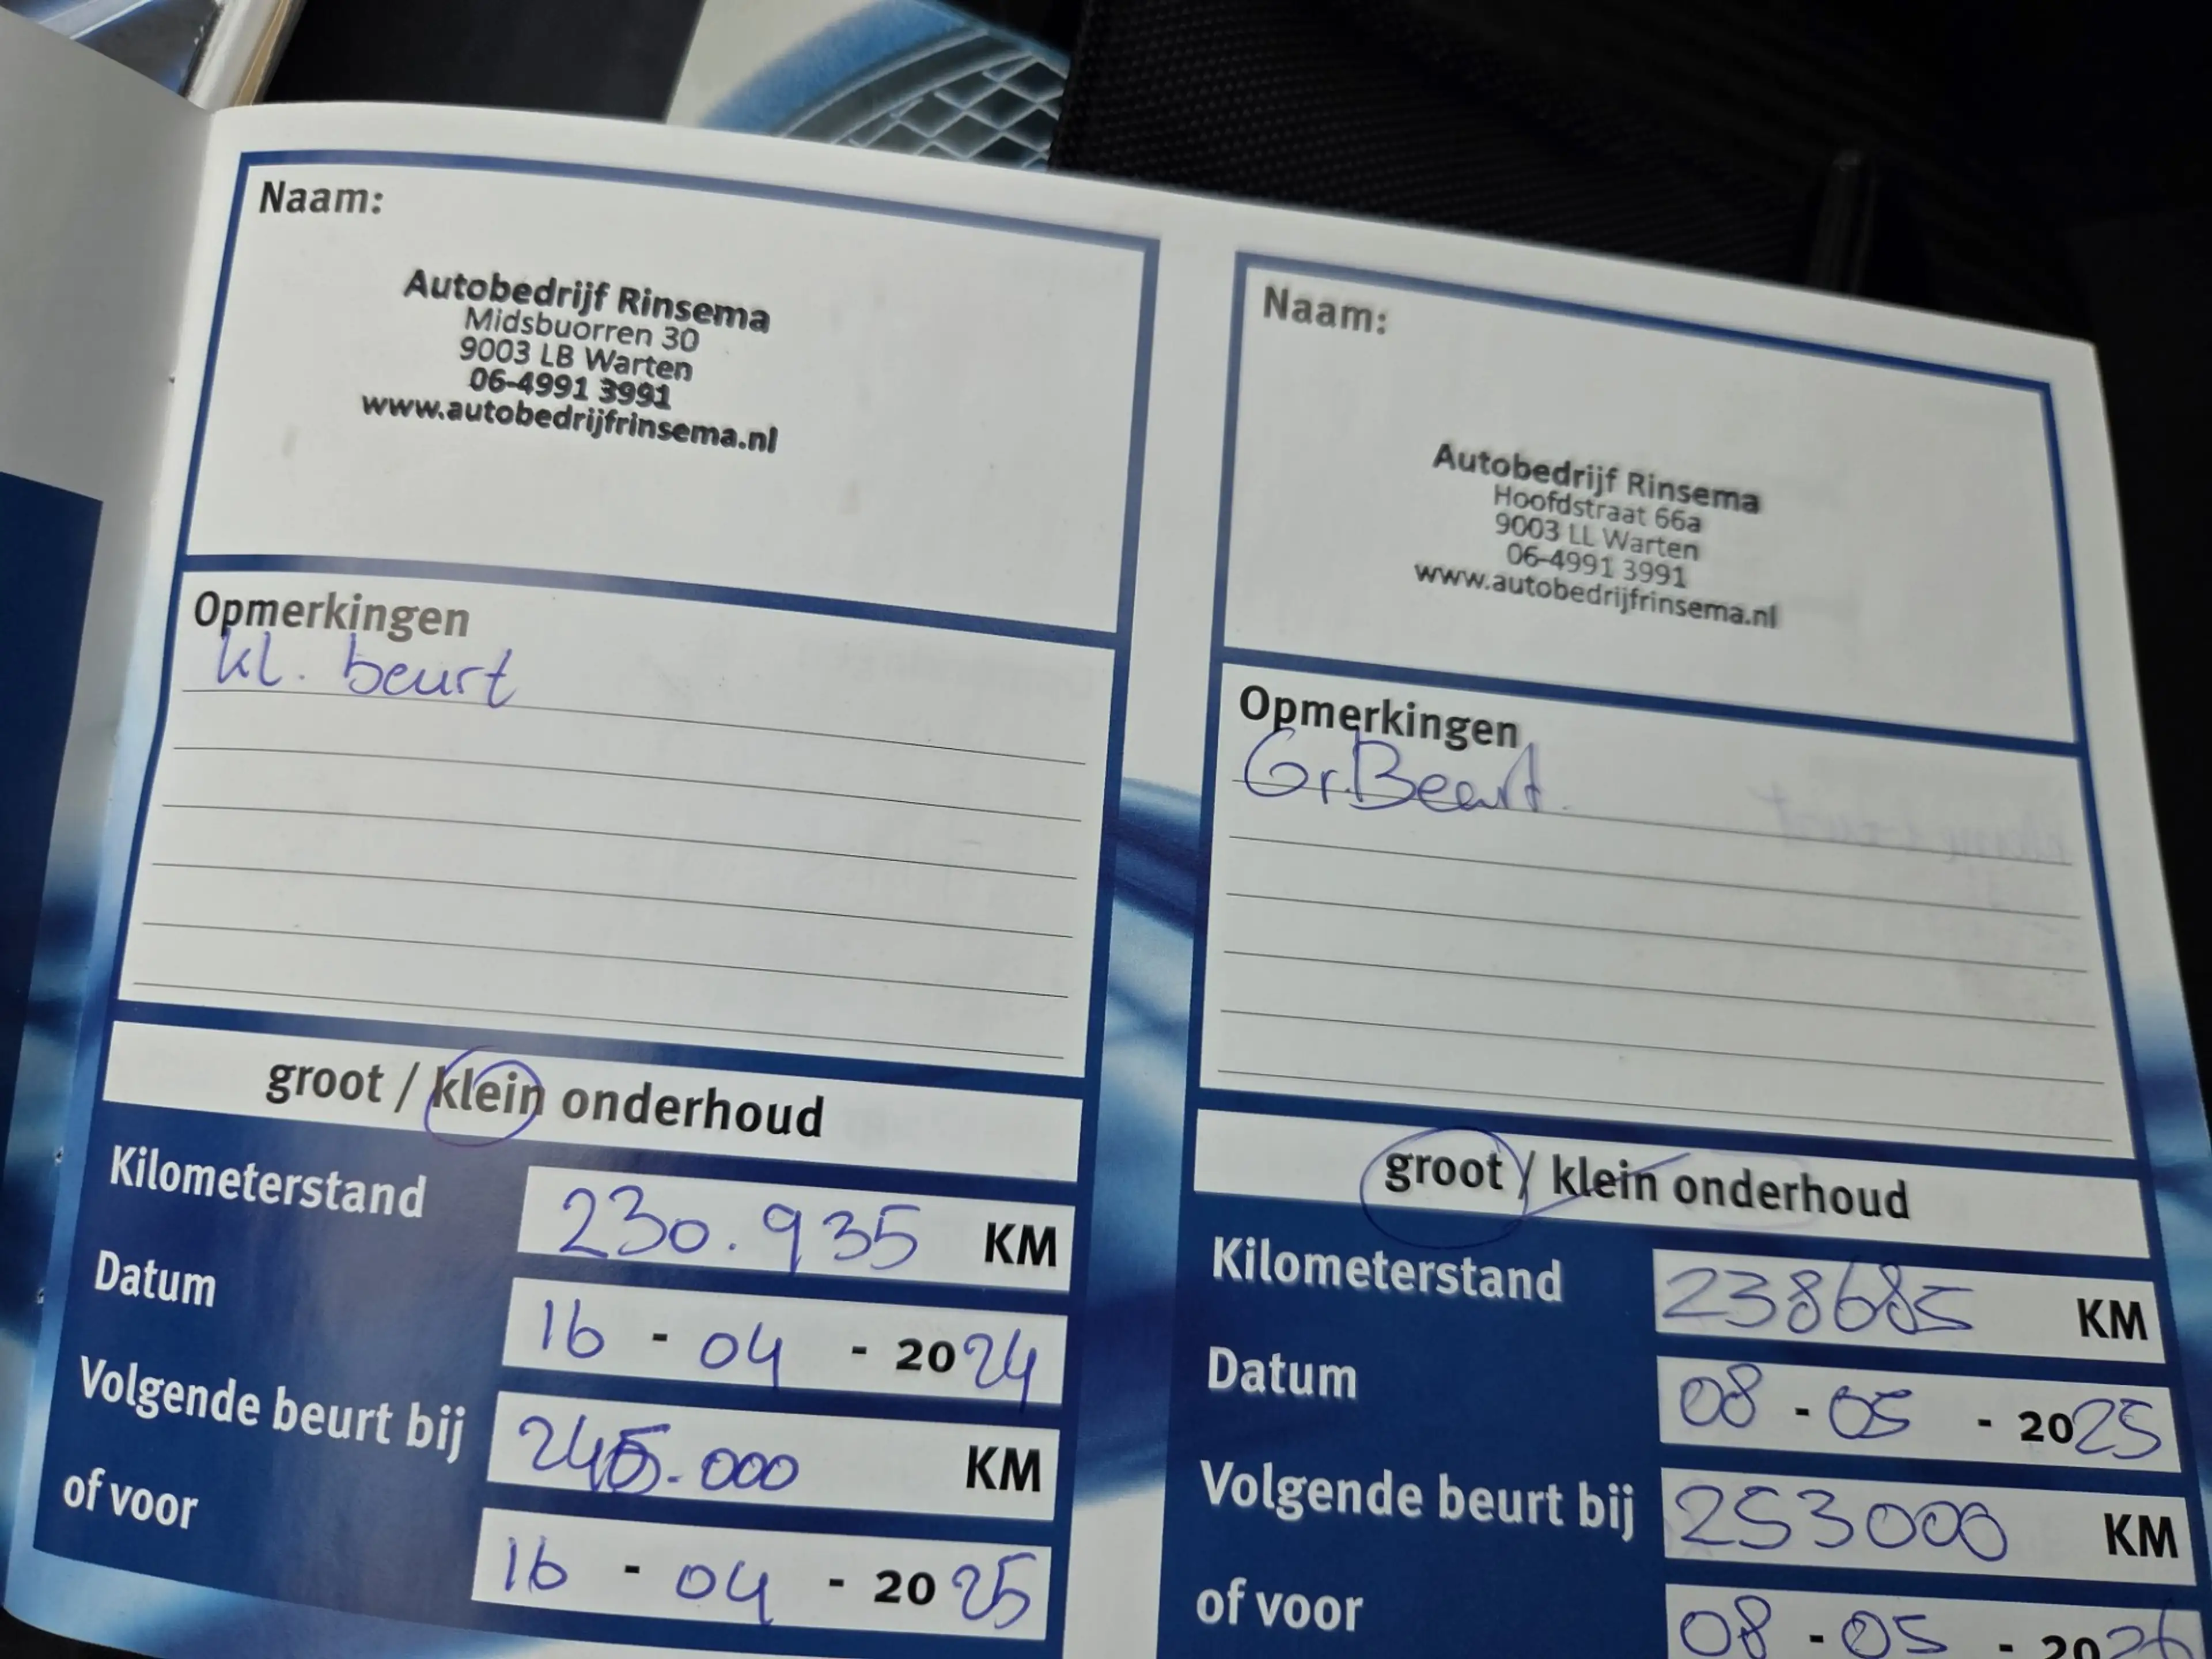 Naam:
Autobedrijf Rinsema
Midsbuorren 30
9003 LB Warten
06-4991 3991
www.autobedrijfrinsema.nl
Opmerkingen
kl. beurt
groot / klein onderhoud
Kilometerstand 230.935 KM
Datum 16 - 04 - 2024
Volgende beurt bij 245.000 KM
of voor 16 - 04 - 2025
Naam:
Autobedrijf Rinsema
Hoofdstraat 66a
9003 LL Warten
06-4991 3991
www.autobedrijfrinsema.nl
Opmerkingen
Gr.Beurt.
groot / klein onderhoud
Kilometerstand 238685 KM
Datum 08 - 05 - 2025
Volgende beurt bij 253000 KM
of voor 08 - 05 - 2026